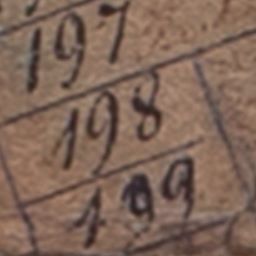 197
198
199